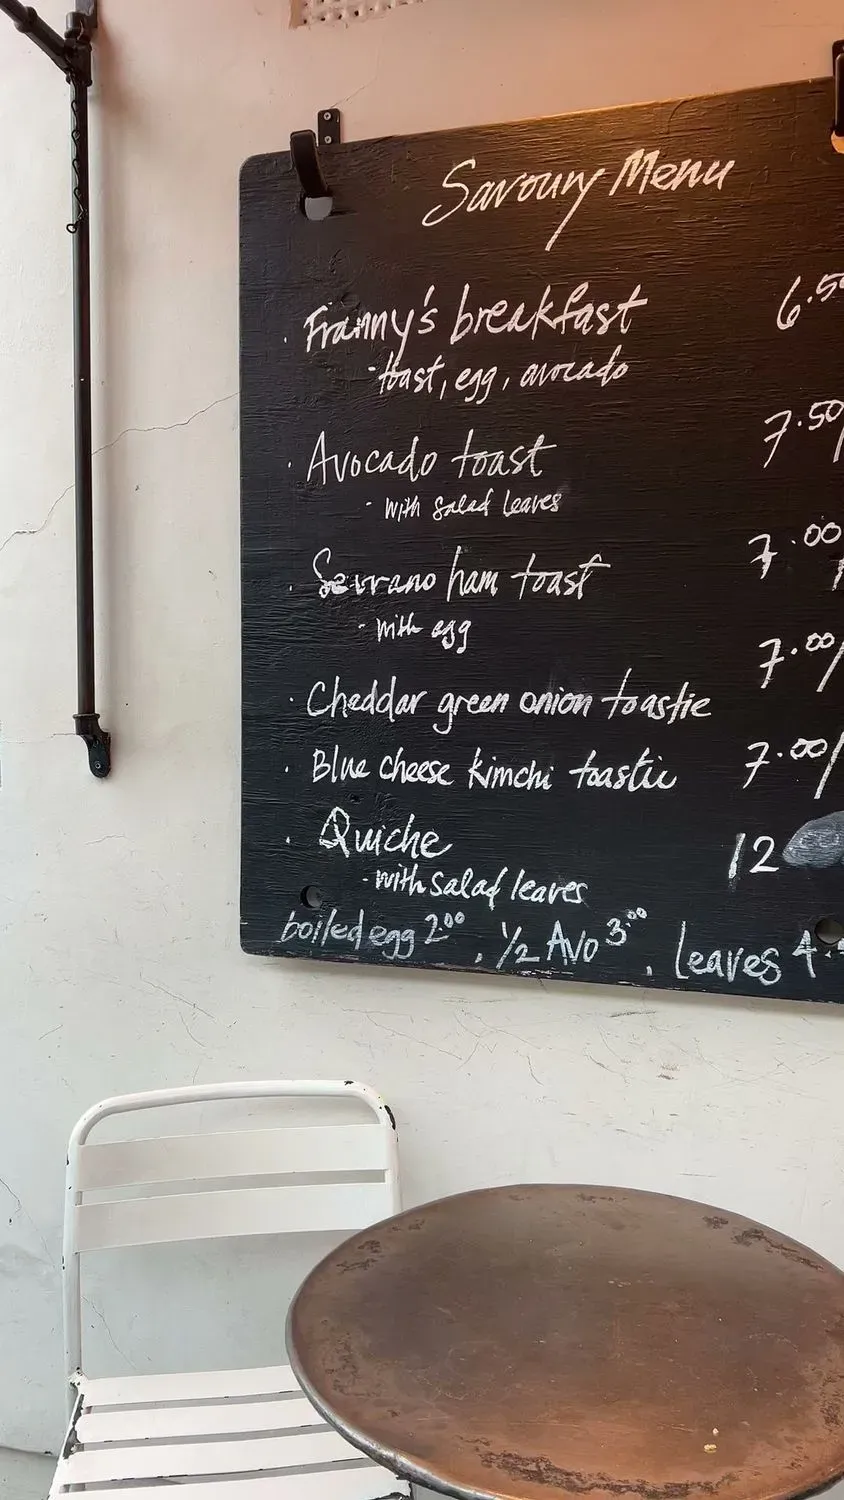 Savoury Menu
· Franny's breakfast 6.50
- toast, egg, avocado
· Avocado toast 7.50/
- with salad leaves
· Serrano ham toast 7.00
- with egg
· Cheddar green onion toastie 7.00/
· Blue cheese kimchi toastie 7.00/
· Quiche 12
- with salad leaves
boiled egg 2.00, 1/2 Avo 3.00, leaves 4.